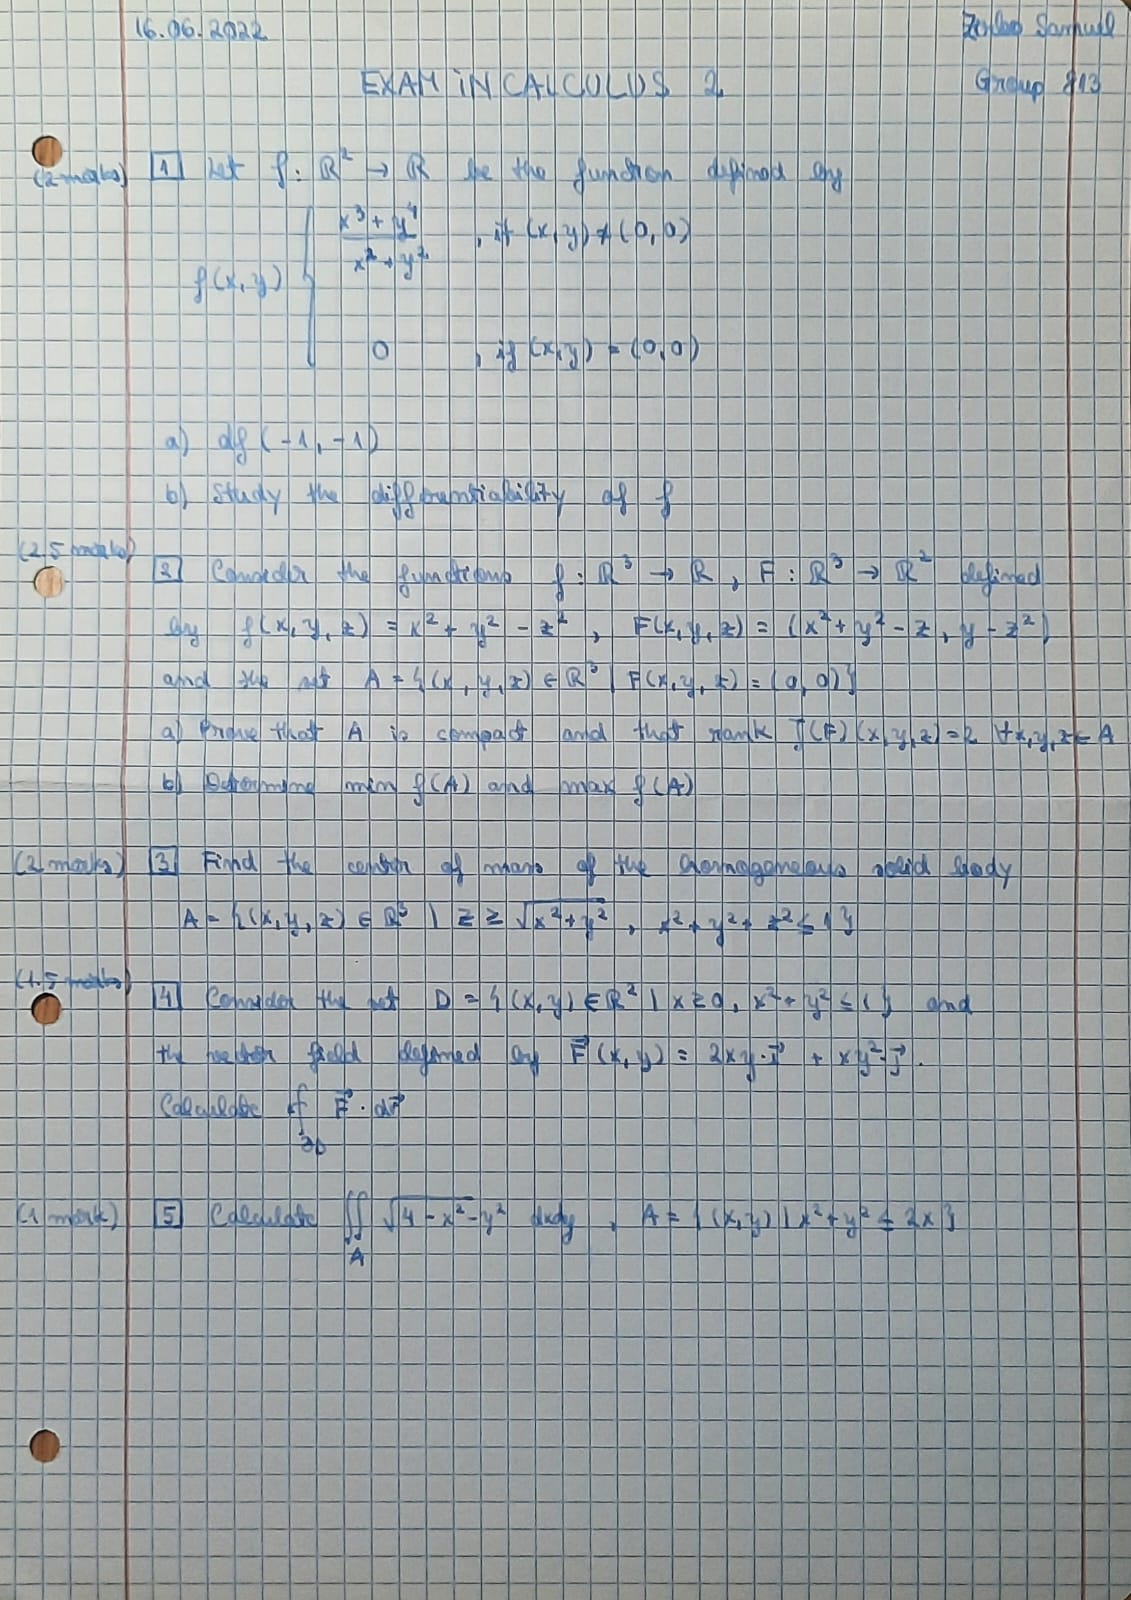 16.06.2022 Samuel
EXAM IN CALCULUS 2 Group 813
(2 marks) 1 Let f: ℝ² → ℝ be the function defined by
f(x,y) { x³ + y⁴ / x² + y² , if (x,y) ≠ (0,0)
0 , if (x,y) = (0,0)
a) df(-1,-1)
b) Study the differentiability of f
(2.5 marks) 2 Consider the functions f: ℝ³ → ℝ, F: ℝ³ → ℝ² defined
by f(x,y,z) = x² + y² - z², F(x,y,z) = (x² + y² - z, y - z²)
and the set A = {(x,y,z) ∈ ℝ³ | F(x,y,z) = (0,0)}
a) Prove that A is compact and that rank J(F)(x,y,z) = 2 ∀x,y,z ∈ A
b) Determine min f(A) and max f(A)
(2 marks) 3 Find the center of mass of the homogeneous solid body
A = {(x,y,z) ∈ ℝ³ | z ≥ √(x² + y²), x² + y² + z² ≤ 1}
(1.5 marks) 4 Consider the set D = {(x,y) ∈ ℝ² | x ≥ 0, x² + y² ≤ 1} and
the vector field defined by F⃗(x,y) = 2xy·i⃗ + xy²·j⃗.
Calculate ∮ F⃗·dr⃗
∂D
(1 mark) 5 Calculate ∬ √(4 - x² - y²) dxdy, A = {(x,y) | x² + y² ≤ 2x}
A